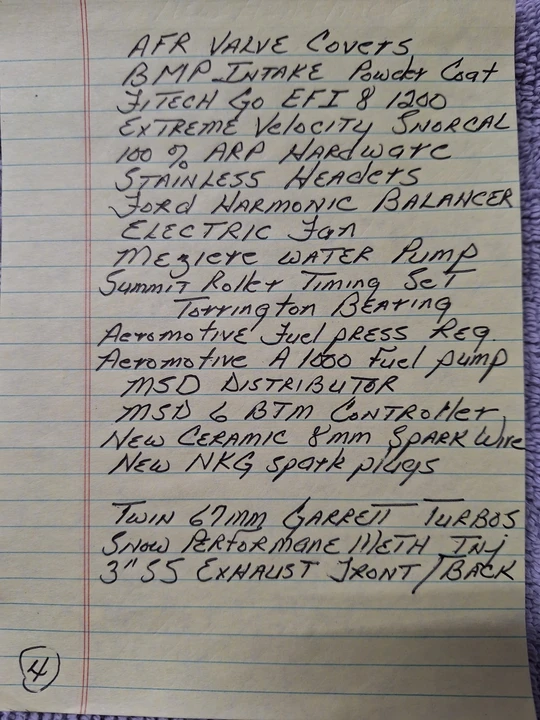 AFR VALVE Covers
BMP INTAKE Powder Coat
FiTECH Go EFI 8 1200
EXTREME Velocity SNORCAL
100 % ARP HARdware
STAINLESS HeadeRs
Ford HARMONIC BALANCER
ELECTRIC Fan
Meziere WATER Pump
Summit Roller Timing SeT
Torrington BEARING
Aeromotive Fuel PRESS Reg.
Aeromotive A 1000 Fuel pump
MSD DISTRIBUTOR
MSD 6 BTM CONTROller
NEW CERAMIC 8mm SPARK Wire
NEW NKG spark plugs
TWIN 67mm GARRETT TURBOS
SNOW PERFORMANE METH Inj
3" SS EXHAUST FRONT/BACK
4